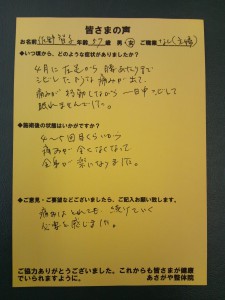 皆さまの声
お名前 佐野 智子 年齢 57 歳 男・女 ご職業 なし(主婦)
◆いつ頃から、どのような症状がありましたか?
4月に左足から腰あたりまで
しびれたような痛みが出て、
痛みが移動しながら一日中
眠れませんでした。
◆施術後の状態はいかがですか?
4〜5回目くらいから
痛みが全くなくなって
全身が楽になりました。
◆ご意見・ご要望などございましたら、ご記入お願い致します。
痛みはとれても、続けていく
必要を感じました。
ご協力ありがとうございました。これからも皆さまが健康
でいられますように。
あさがや整体院